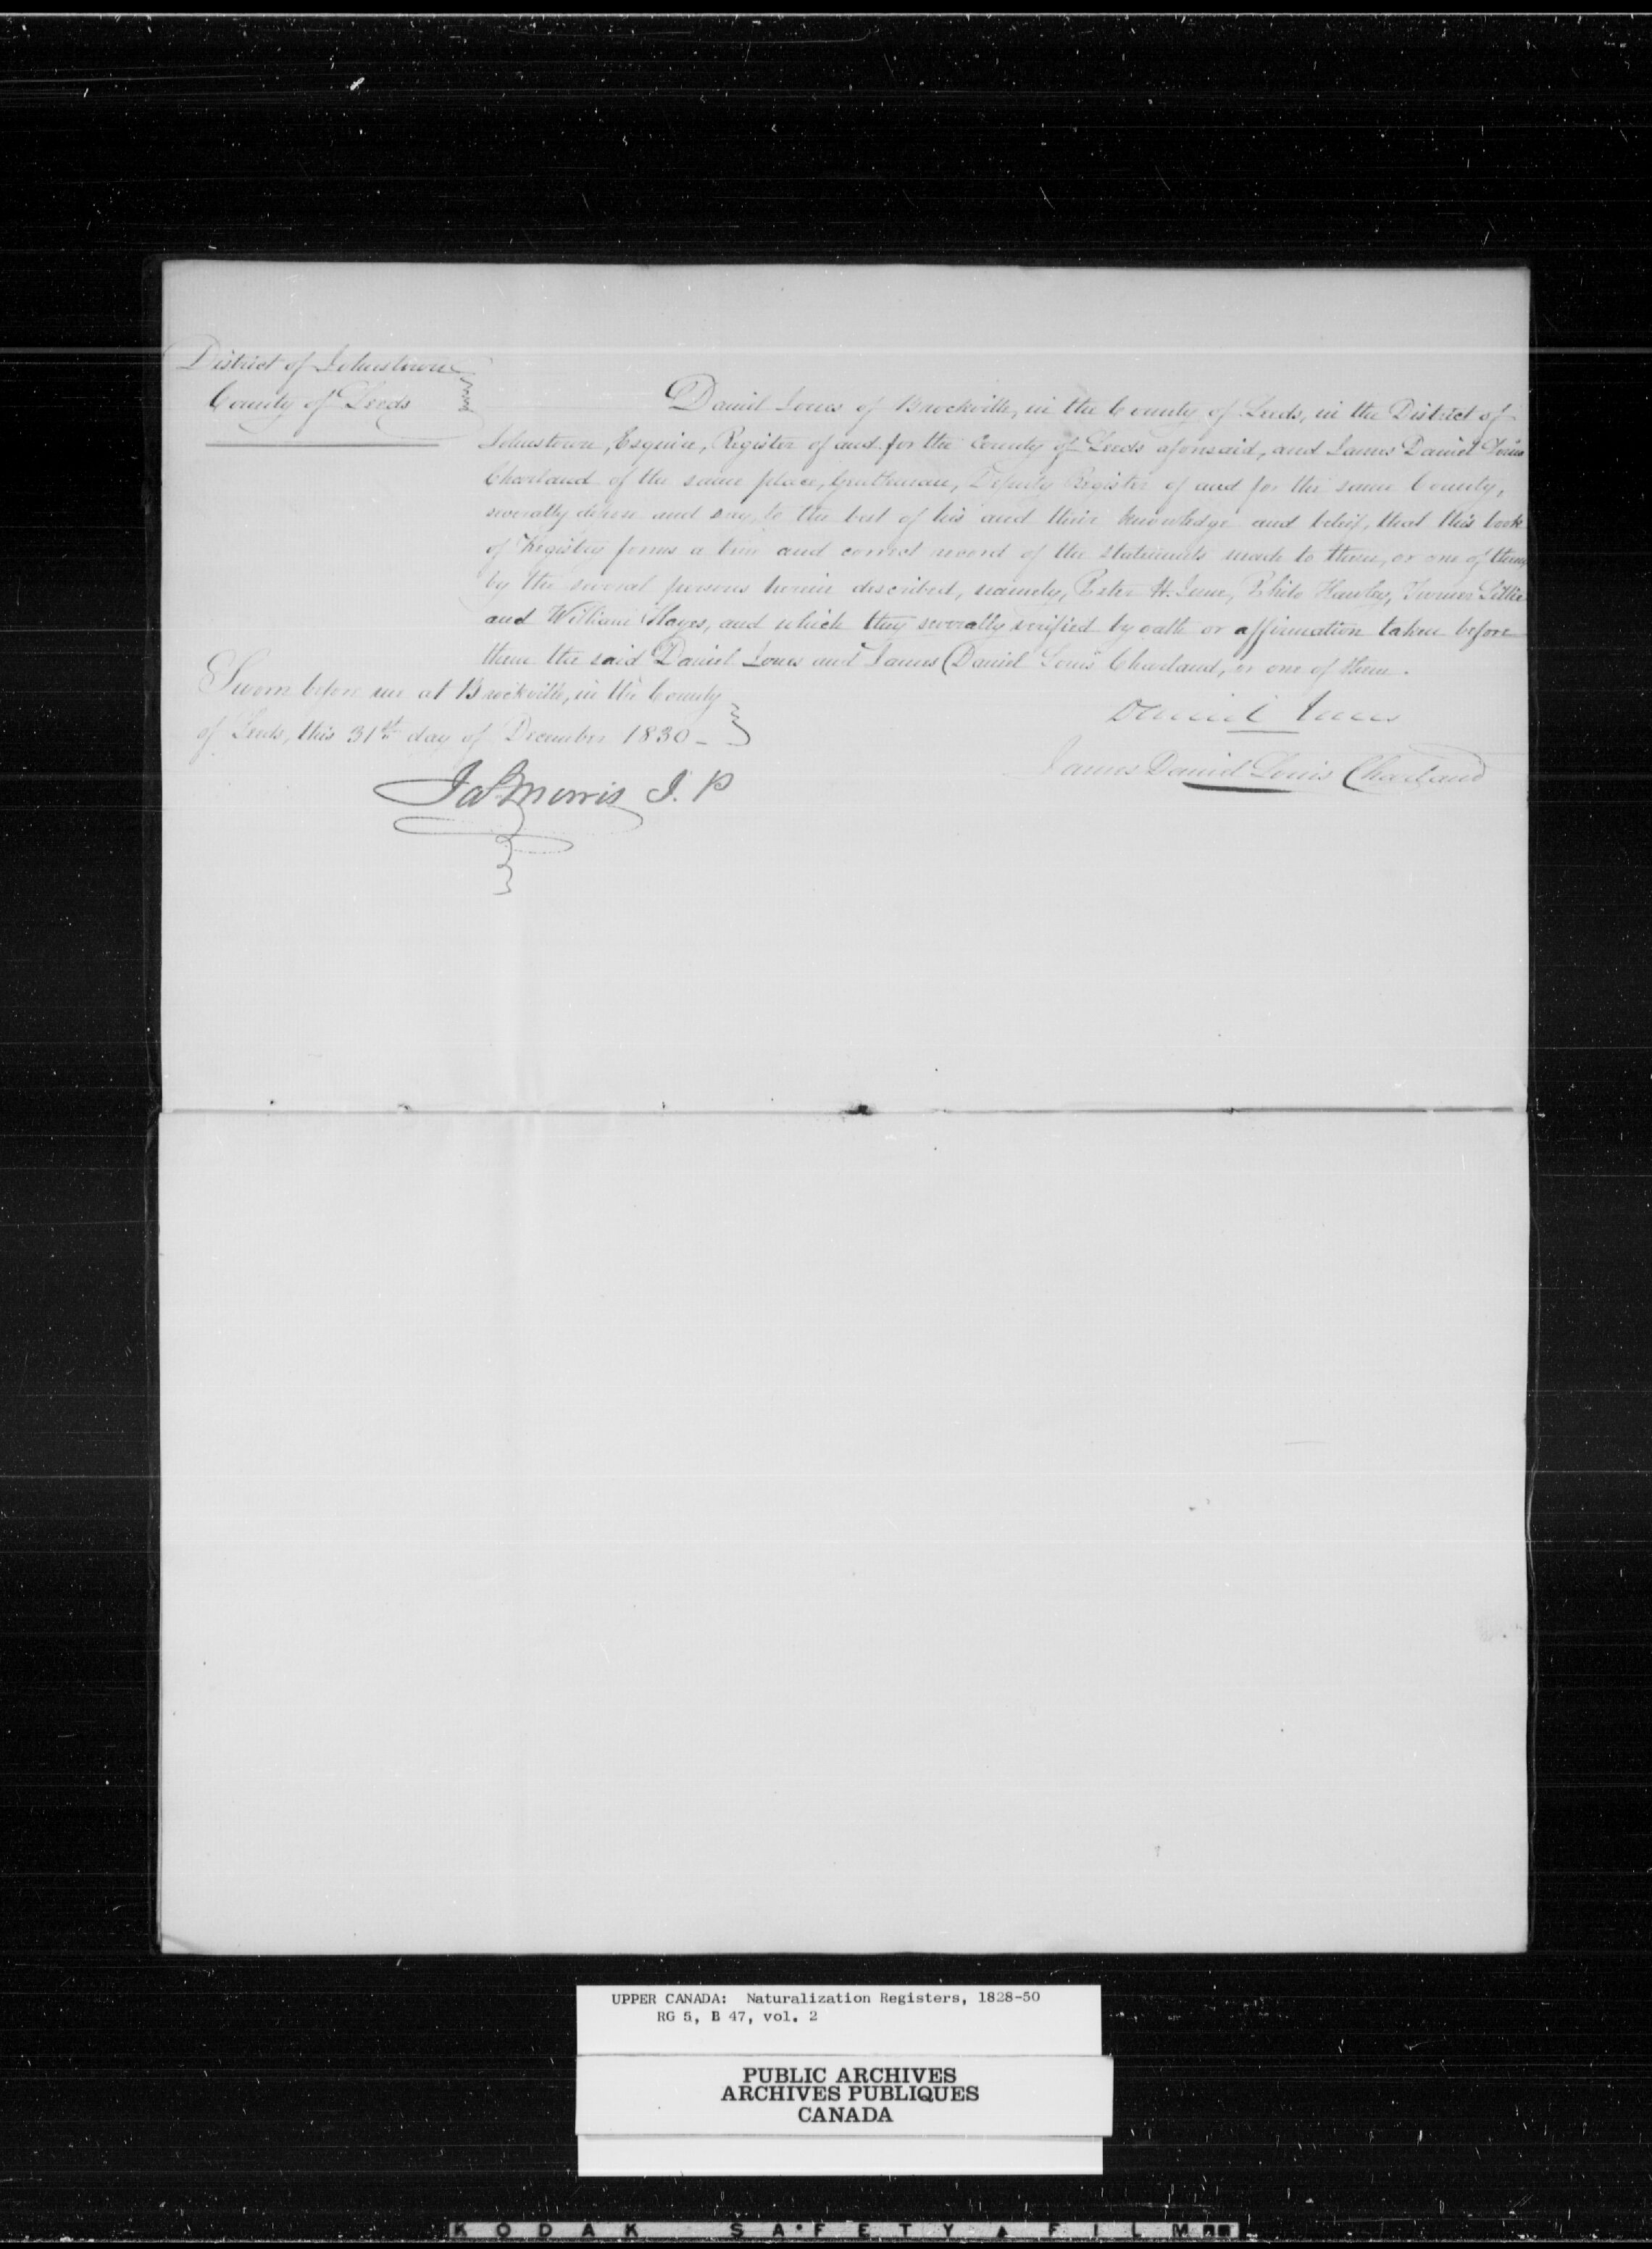 District of Johnstown
County of Leeds
Daniel Jones of Brockville, in the County of Leeds, in the District of
Johnstown, Esquire, Register of and for the County of Leeds aforesaid, and James Daniel Louis
Charland of the same place, Gentleman, Deputy Register of and for the same County,
severally depose and say, to the best of his and their knowledge and belief, that this book
of Registry forms a true and correct record of the statements made to them, or one of them
by the several persons herein described, namely, Peter H. June, Philo Hawley, Turner Lillie
and William Hayes, and which they severally verified by oath or affirmation taken before
them the said Daniel Jones and James Daniel Louis Charland, or one of them.
Sworn before me at Brockville, in the County
of Leeds, this 31st day of December 1830 -
Daniel Jones
James Daniel Louis Charland
Jas Morris J. P
UPPER CANADA: Naturalization Registers, 1828-50
RG 5, B 47, vol. 2
PUBLIC ARCHIVES
ARCHIVES PUBLIQUES
CANADA
KODAK SAFETY FILM